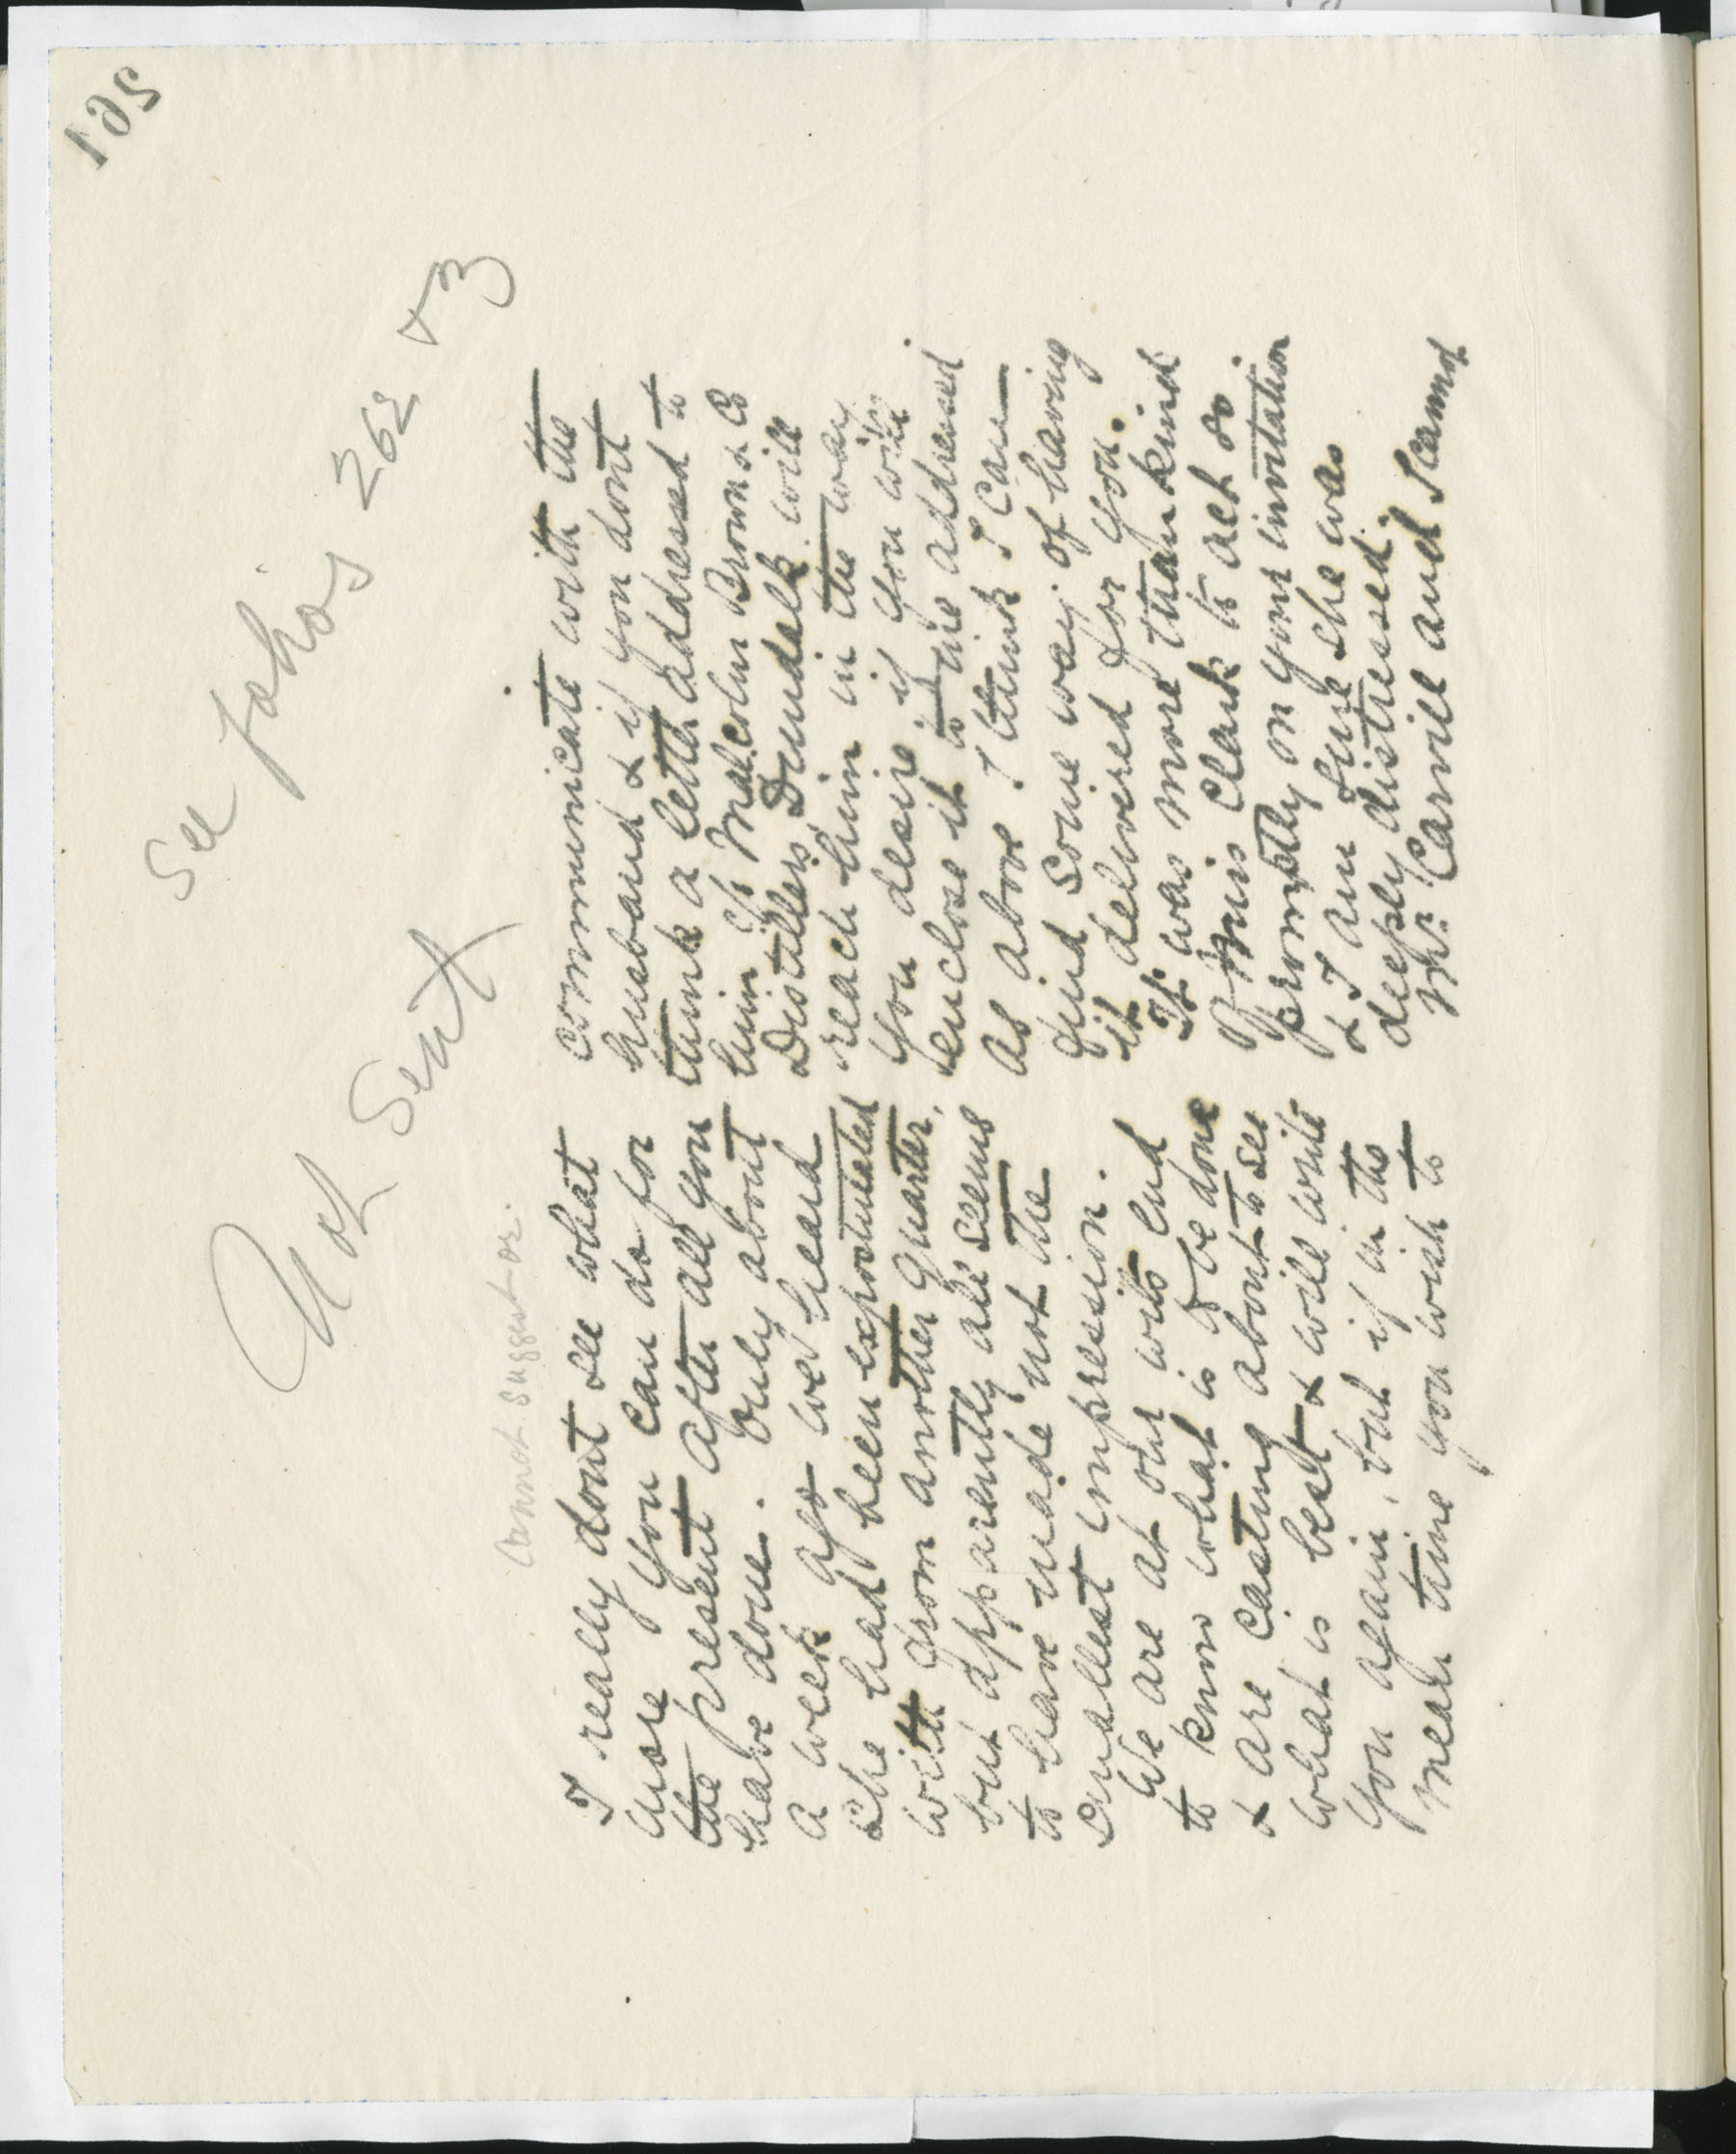 195
See folios 262 & 3
Not Sent
Cannot suggest or.
I really dont see what
more you can do for
the present after all you
have done. Only about
a week ago we heard
she had been expostulated
with from another quarter,
but apparently all seems
to have made not the
smallest impression.
We are at our wits end
to know what is to be done
& are casting about to see
what is best & will write
you again, but if in the
mean time you wish to
communicate with the
husband & if you dont
think a letter addressed to
him c/o Malcolm Brown & Co
Distillers, Dundalk will
reach him in the way
you desire if you will
enclose it to me addressed
as above I think I can
find some way of having
it delivered for you.
It was more than kind
of Miss Clark to act so
promptly on your invitation
& I am sure she was
deeply distressed.
Mr. Carvill and I cannot